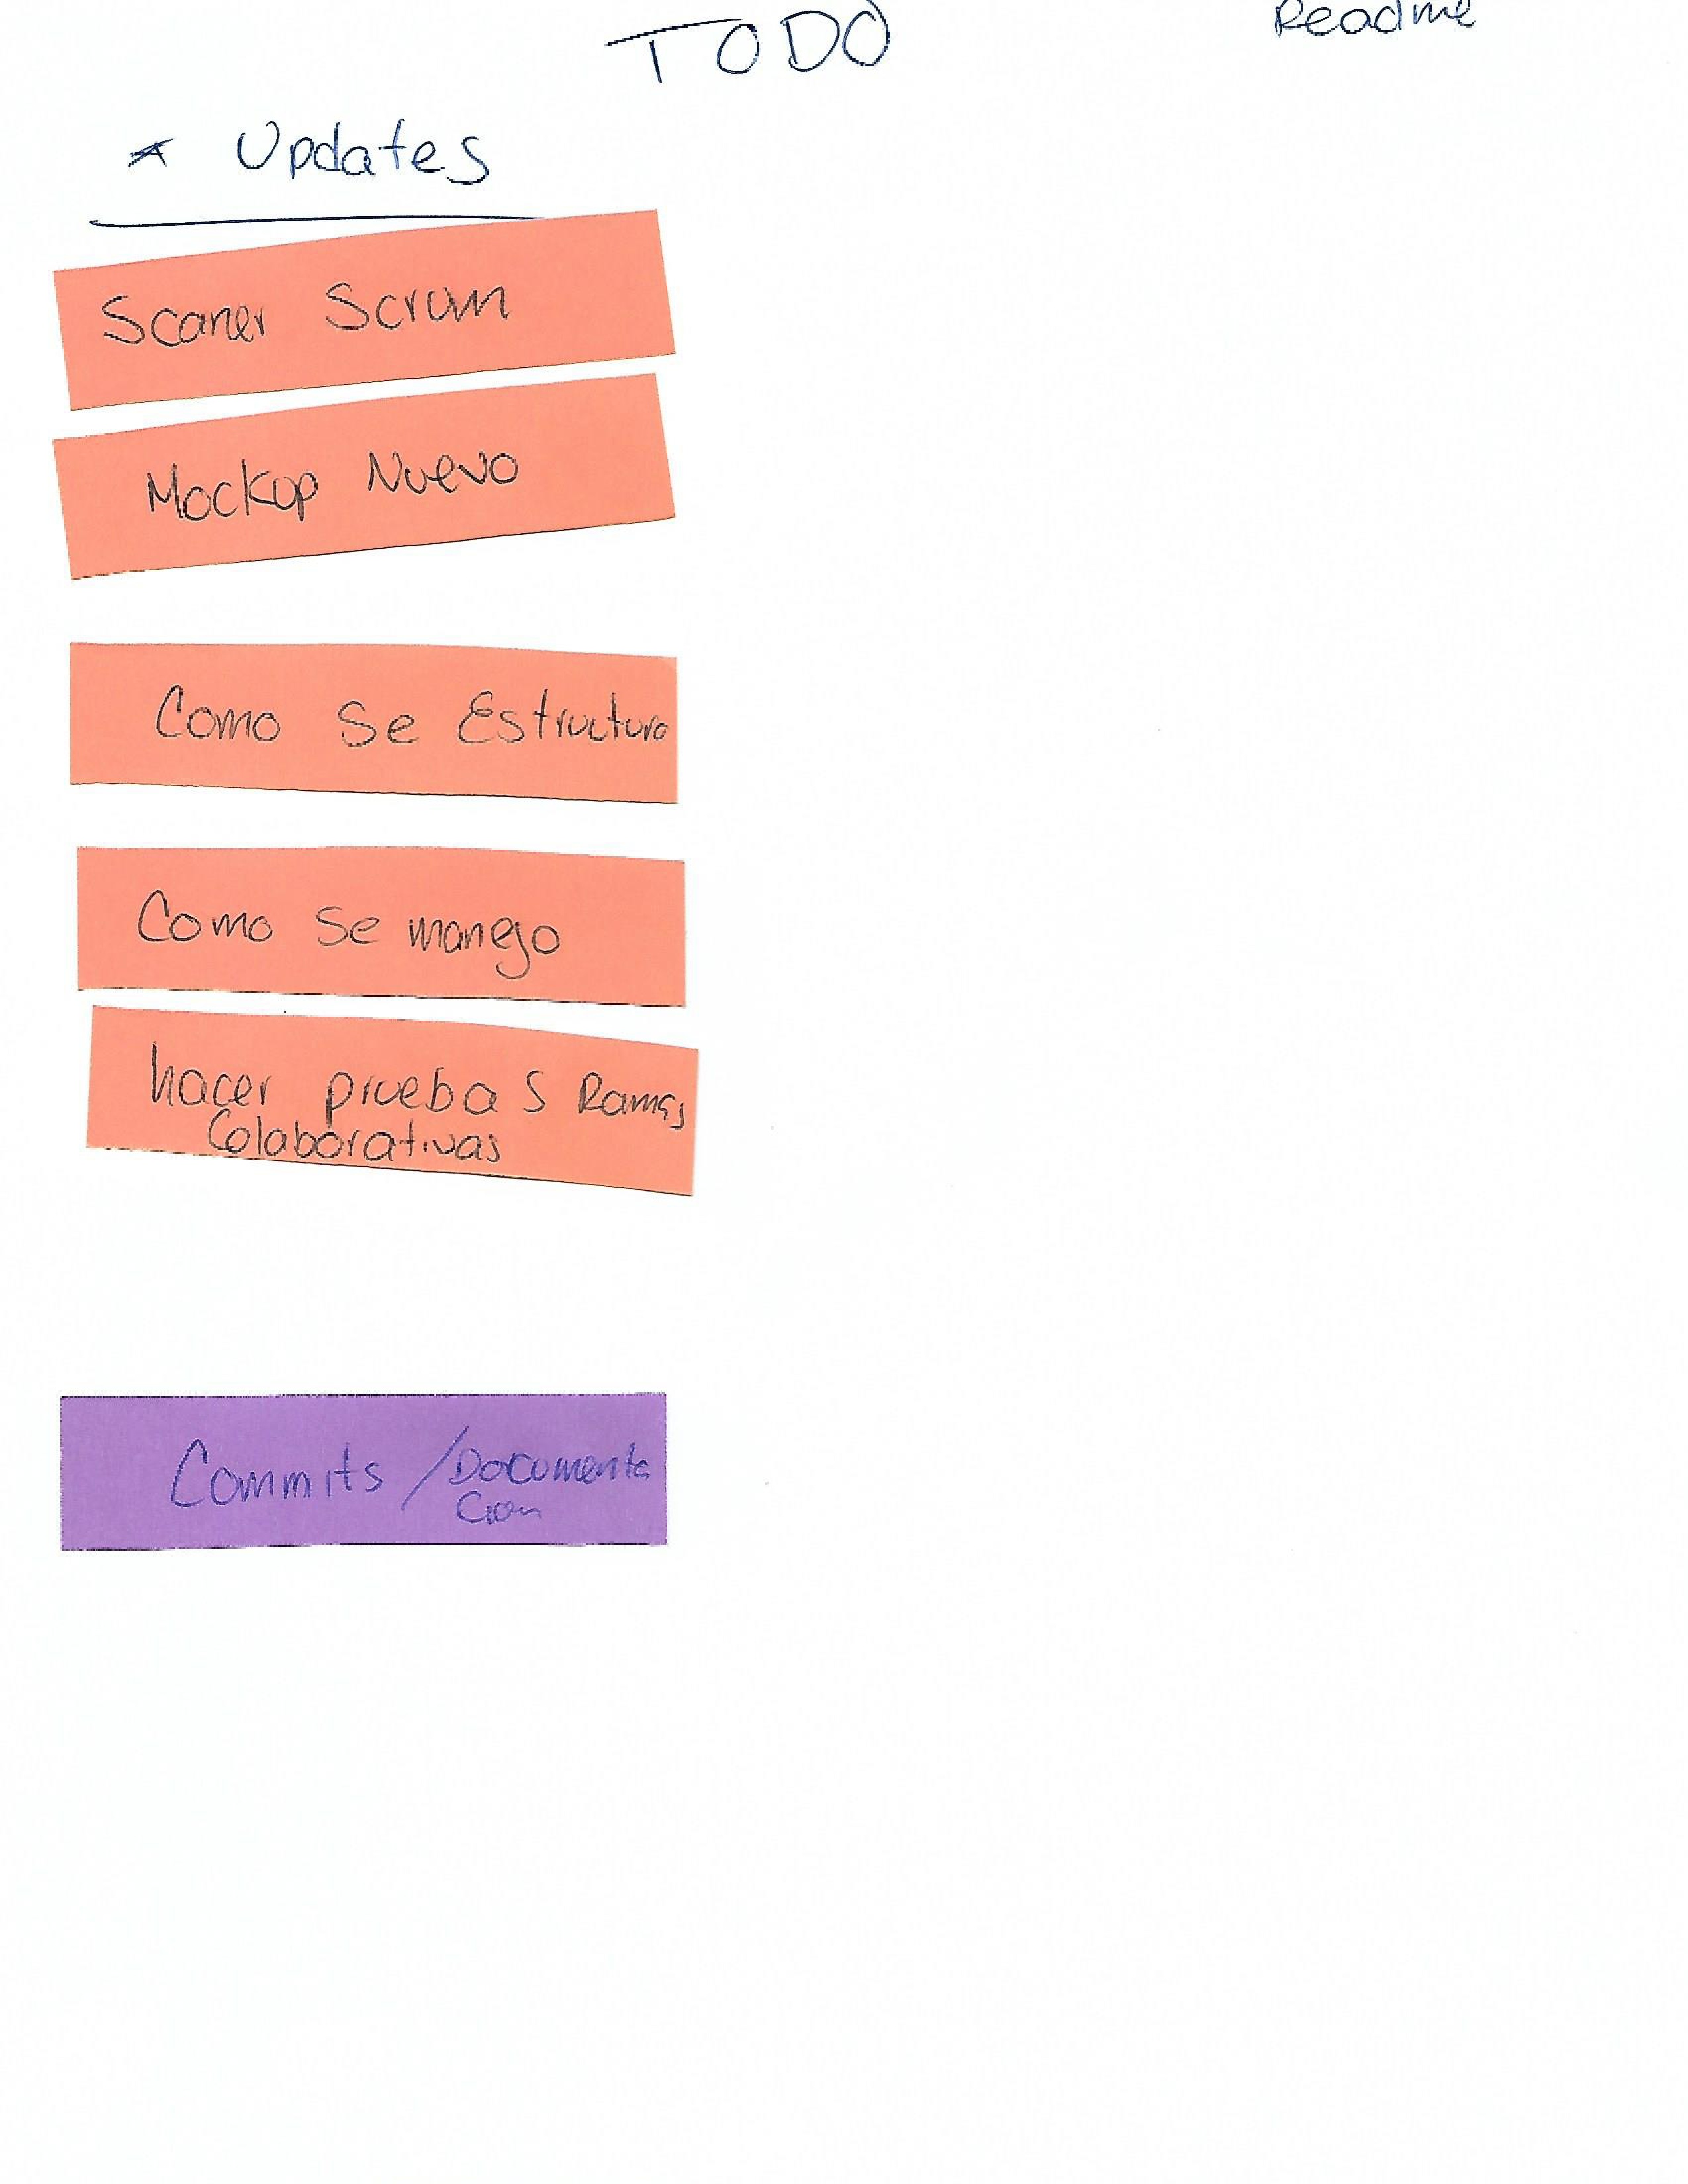 TODO
Readme
* Updates
Scaner Scrum
Mockup Nuevo
Como Se Estructura
Como Se manejo
hacer pruebas Ramas
Colaborativas
Commits / Documenta
cion